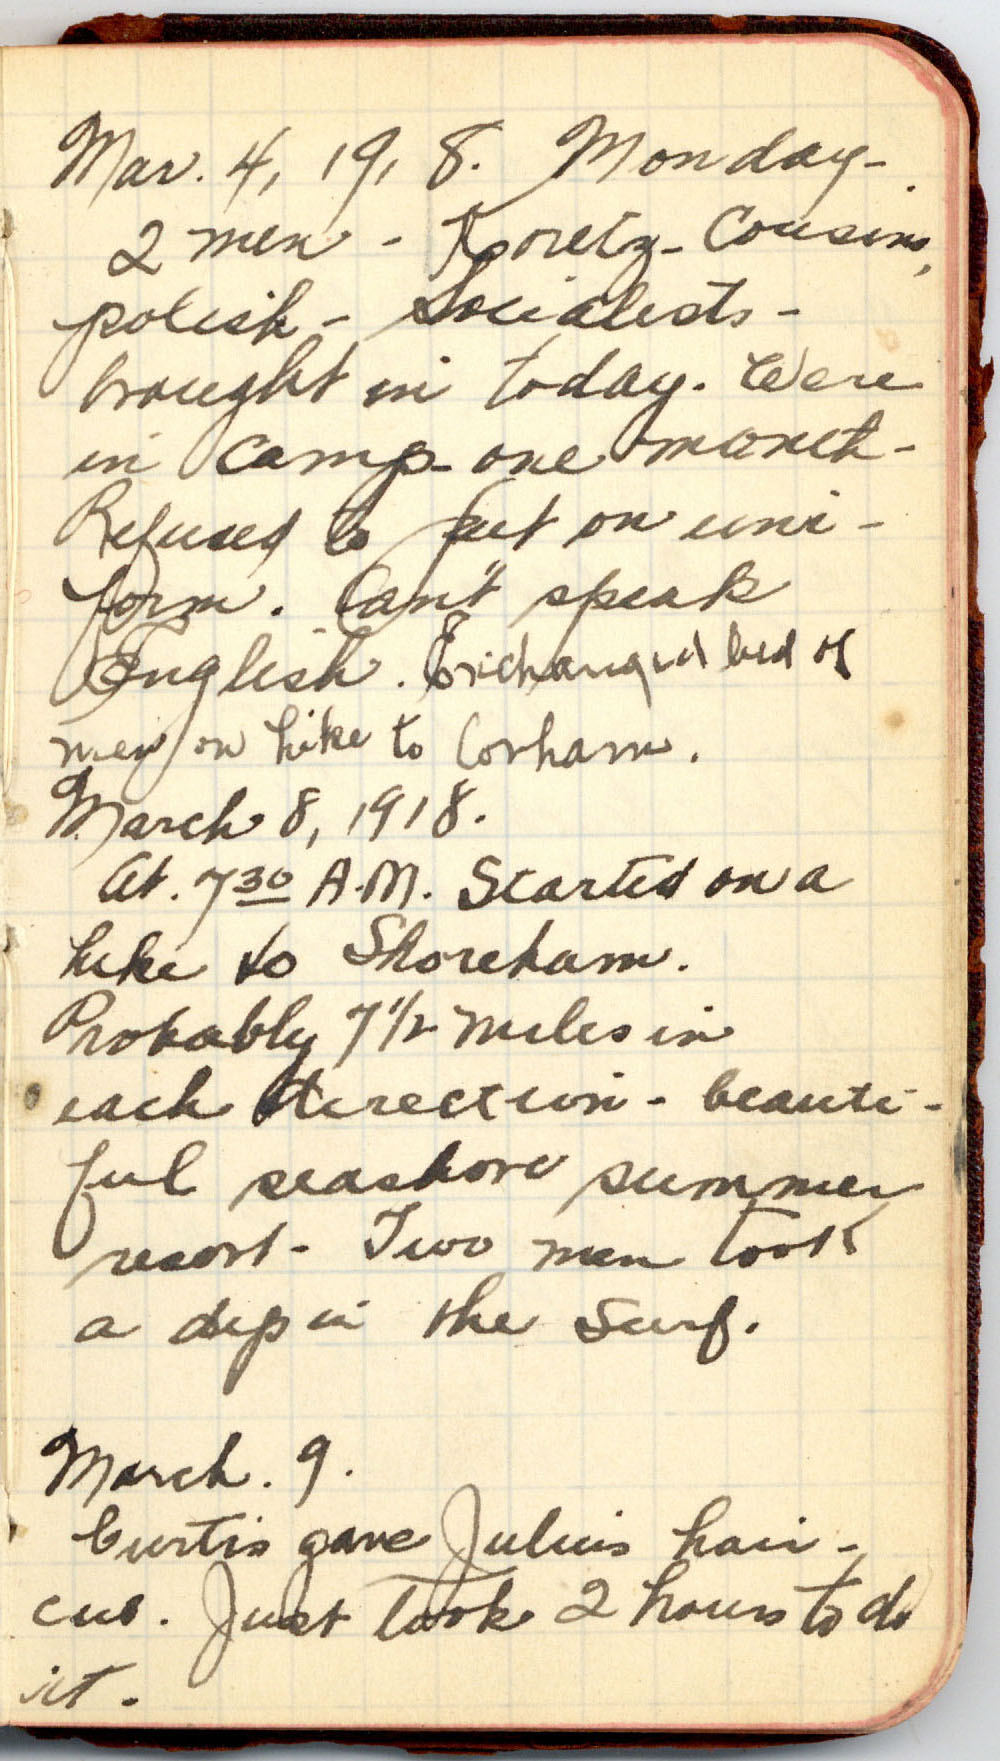 Mar. 4, 1918. Monday-
2 men - Koretz - Cousins,
polish - Socialists -
brought in today. Were
in camp one month -
Refused to put on uni-
form. Can't speak
English. bed of
men on hike to
March 8, 1918.
At. 7 30 A.M. Started on a
hike to Shoreham.
Probably 7 1/2 miles in
each direction - beauti-
ful seashore summer
resort - Two men took
a dip in the surf.
March. 9.
Curtis gave Julius hair-
cut. Just took 2 hours to do
it.